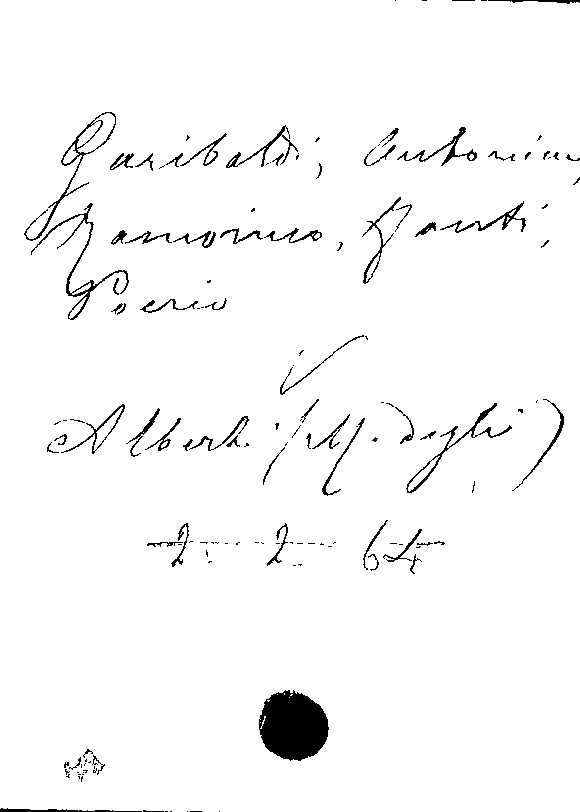 Garibaldi, Antonini,
Ramorino, Fanti,
Poerio
Alberti (M. degli)
2. 2. 64